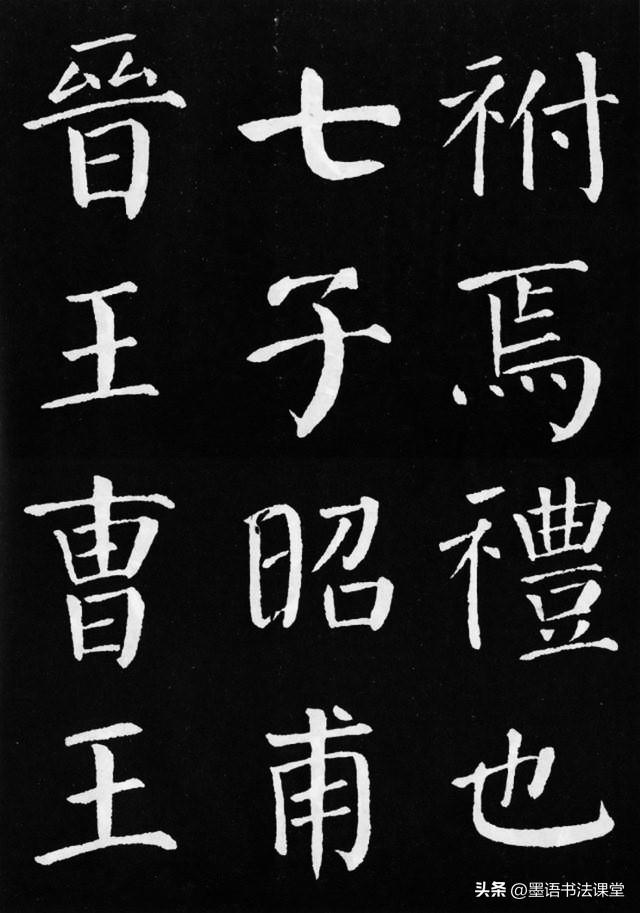 祔焉禮也
七子昭甫
晉王曹王
头条 @墨语书法课堂